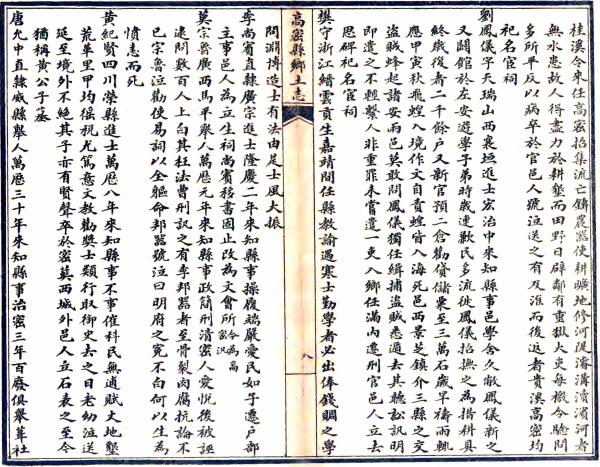 桂溪令來任高密招集流亡鑄農器使耕曠地修河隄濬溝瀆濱河者
無水患故人得盡力於耕墾而田野日辟鄰有重獄大吏每檄令鞫問
多所平反以病卒於官邑人號泣送之有及淮而後返者貴溪高密均
祀名宦祠
劉鳳儀字天瑞山西襄垣進士宏治中來知縣事邑學舍久敝鳳儀新之
又闢館於左安遊學子弟時歲連歉民多流徙鳳儀招撫之為措耕具
終歲復者二千餘户又新官預二倉勸貸儲粟至三萬石歲旱禱雨輒
應甲寅秋飛蝗入境作文自責蝗皆入海死邑西景芝鎮介三縣之交
盜賊蜂起諸安兩邑莫敢問鳳儀獨任緝捕盜賊悉遁去其聽訟訊明
即遣之不輕繫人非重罪未嘗遣一吏入鄉任滿內遷刑官邑人立去
思碑祀名宦祠
樊守浙江縉雲貢生嘉靖間任縣教諭遇寒士勤學者必出俸錢賙之學
高密縣鄉土志
八
問淵博造士有法由是士風大振
李尚賓直隸廣宗進士隆慶二年來知縣事操履端嚴愛民如子遷户部
主事邑人為立生祠尚賓移書固止改為文會所今為高密汎
莫宗魯廣西馬平舉人萬歷元年來知縣事政簡刑清密人愛悅後被誣
逮問數百人上白其枉法曹刑訊之有李邦器者至骨裂肉腐抗論不
已宗魯泣勸使易詞以全軀命邦器號泣曰明府之寃不白何以生為
憤恚而死
黃紀賢四川榮縣進士萬歷八年來知縣事不事催科民無逋賦丈地墾
荒革里甲均徭祝尤篤意文教勸獎士類行取御史去之日老幼泣送
延至境外不絕其子亦有賢聲卒於密葬西城外邑人立石表之至今
猶稱黃公子墓
唐允中直隸威縣舉人萬歷三十年來知縣事治密三年百廢俱舉葺社